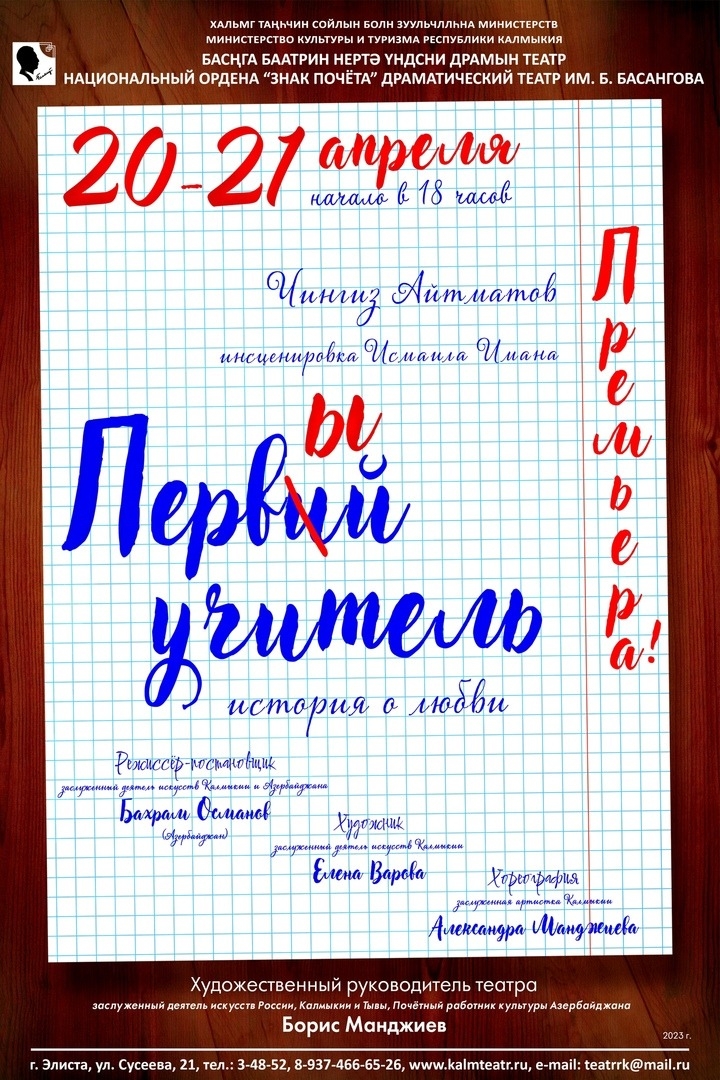 ХАЛЬМГ ТАҢҺЧИН СОЙЛЫН БОЛН ЗУУЛЬЧЛЛҺНА МИНИСТЕРСТВ
МИНИСТЕРСТВО КУЛЬТУРЫ И ТУРИЗМА РЕСПУБЛИКИ КАЛМЫКИЯ
БАСҢГА БААТРИН НЕРТӘ ҮНДСНИ ДРАМЫН ТЕАТР
НАЦИОНАЛЬНЫЙ ОРДЕНА “ЗНАК ПОЧЁТА” ДРАМАТИЧЕСКИЙ ТЕАТР ИМ. Б. БАСАНГОВА
20-21 апреля
начало в 18 часов
Премьера!
Чингиз Айтматов
инсценировка Исмаила Имана
ы
Первий
учитель
история о любви
Режиссёр-постановщик
заслуженный деятель искусств Калмыкии и Азербайджана
Бахрам Османов
(Азербайджан)
Художник
заслуженный деятель искусств Калмыкии
Елена Варова
Хореография
заслуженная артистка Калмыкии
Александра Манджиева
Художественный руководитель театра
заслуженный деятель искусств России, Калмыкии и Тывы, Почётный работник культуры Азербайджана
Борис Манджиев
2023 г.
г. Элиста, ул. Сусеева, 21, тел.: 3-48-52, 8-937-466-65-26, www.kalmteatr.ru, e-mail: teatrrk@mail.ru